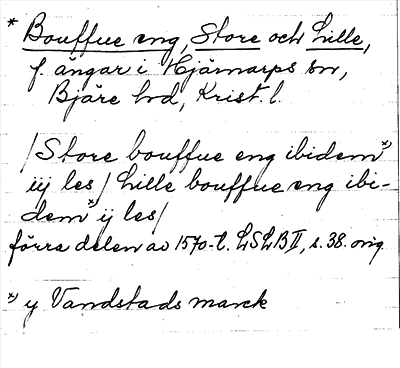 * Bouffue eng, Store och Lille,
f. ängar i Hjärnarps sn,
Bjäre hd, Krist. l.
/Store bouffue eng ibidem *)
iij les/ Lille bouffue eng ibi-
dem *) ij les/
förra delen av 1570-t. LSLB II, s. 38. orig.
*) y Vandstads marck